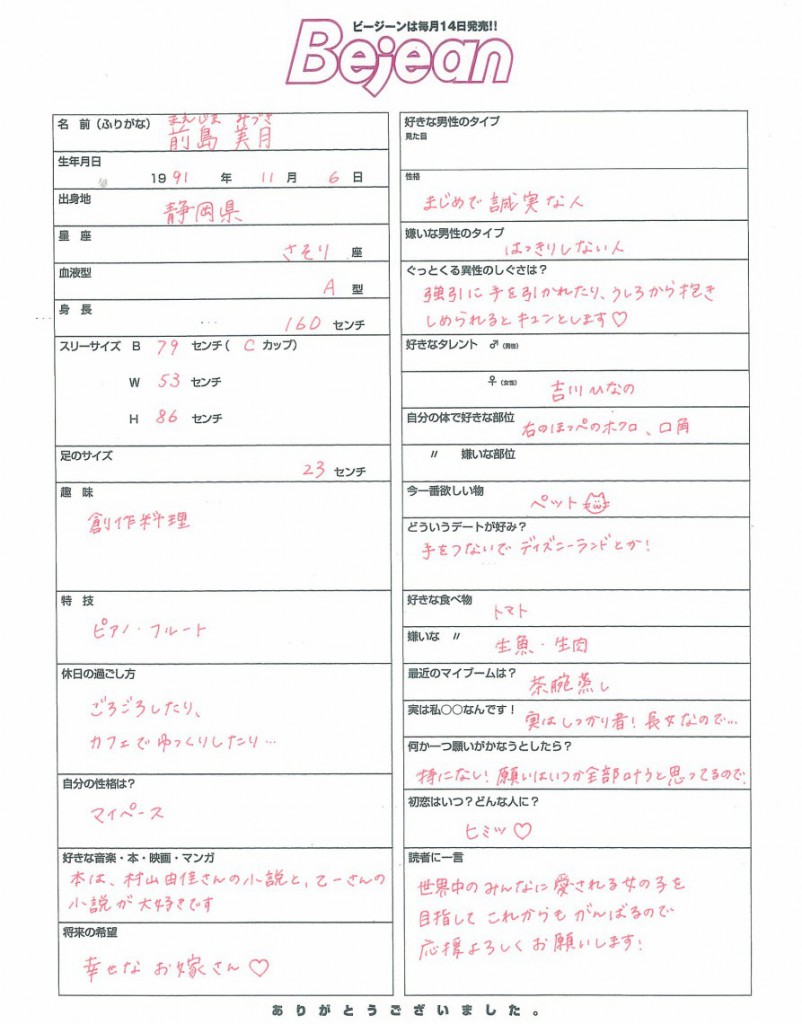 ビージーンは毎月14日発売!!
Bejean
名 前(ふりがな) まえじま みづき
前島 美月
生年月日
1991 年 11 月 6 日
出身地
静岡県
星 座
さそり 座
血液型
A 型
身 長
160 センチ
スリーサイズ B 79 センチ( C カップ)
W 53 センチ
H 86 センチ
足のサイズ
23 センチ
趣 味
創作料理
特 技
ピアノ・フルート
休日の過ごし方
ごろごろしたり、
カフェでゆっくりしたり…
自分の性格は?
マイペース
好きな音楽・本・映画・マンガ
本は、村山由佳さんの小説と、乙一さんの
小説が大好きです
将来の希望
幸せな お嫁さん♡
好きな男性のタイプ
見た目
性格
まじめで誠実な人
嫌いな男性のタイプ
はっきりしない人
ぐっとくる異性のしぐさは?
強引に手を引かれたり、うしろから抱き
しめられるとキュンとします♡
好きなタレント ♂(男性)
♀(女性)
吉川ひなの
自分の体で好きな部位
右のほっぺのホクロ、口角
〃 嫌いな部位
今一番欲しい物
ペット
どういうデートが好み?
手をつないでディズニーランドとか!
好きな食べ物
トマト
嫌いな 〃
生魚・生肉
最近のマイブームは?
茶碗蒸し
実は私○○なんです!
実はしっかり者!長女なので…
何か一つ願いがかなうとしたら?
特になし!願いはいつか全部叶うと思ってるので。
初恋はいつ?どんな人に?
ヒミツ♡
読者に一言
世界中のみんなに愛される女の子を
目指してこれからもがんばるので
応援よろしくお願いします!
ありがとうございました。